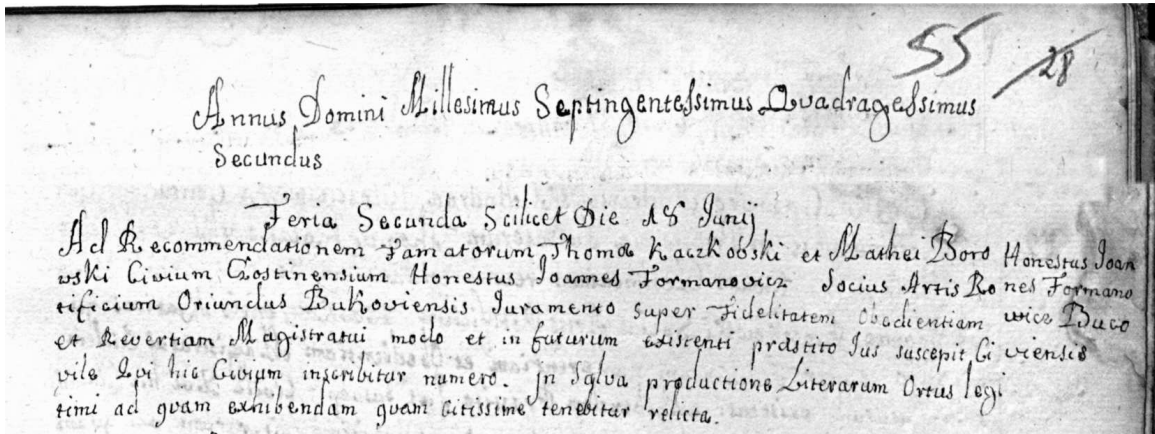 55 28
Annus Domini Millesimus Septingentessimus Quadragessimus
Secundus
Feria Secunda Scilicet Die 18 Junij
Ad Recommendationem Famatorum Thomæ Kaczkowski et Mathei Boro
wski Civium Gostinensium Honestus Joannes Formanovicz Socius Artis Ro
tificium Oriundus Bukoviensis Juramento super Fidelitatem Obedientiam
et Revertiam Magistratui modo et in futurum existenti præstito Jus suscepit Ci
vile Qui hic Civium inscribitur numero. In Salva productione Literarum Ortus legi
timi ad quam exhibendam quam citissime tenebitur relicta.
Honestus Joan
nes Formano
vicz Buco
viensis